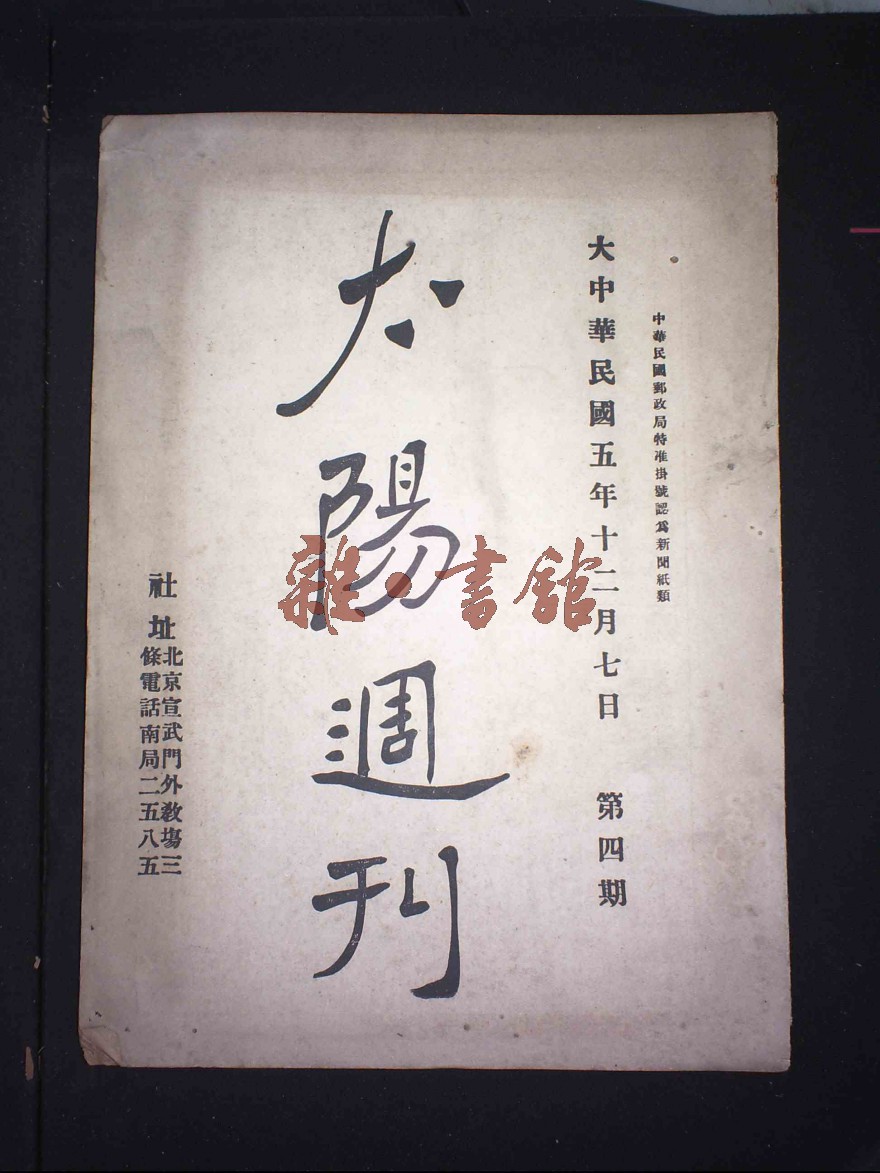 中華民國郵政局特准掛號認爲新聞紙類
大中華民國五年十二月七日 第四期
太陽週刊
雜·書館
社址
北京宣武門外教場三
條電話南局二五八五